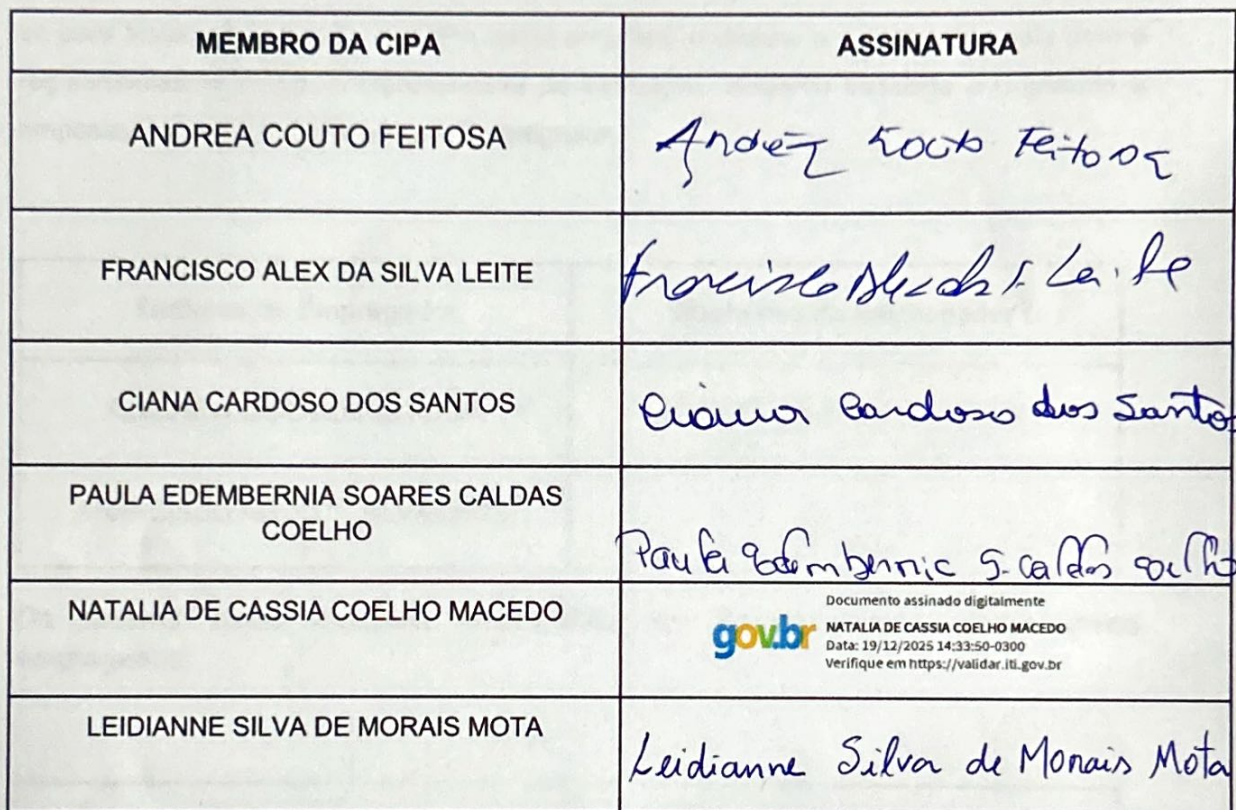 MEMBRO DA CIPA
ASSINATURA
ANDREA COUTO FEITOSA
Andrea Couto Feitosa
FRANCISCO ALEX DA SILVA LEITE
Francisco Alex da S. Leite
CIANA CARDOSO DOS SANTOS
Ciana Cardoso dos Santos
PAULA EDEMBERNIA SOARES CALDAS
COELHO
Paula Edembernia S. Caldas Coelho
NATALIA DE CASSIA COELHO MACEDO
gov.br
Documento assinado digitalmente
NATALIA DE CASSIA COELHO MACEDO
Data: 19/12/2025 14:33:50-0300
Verifique em https://validar.iti.gov.br
LEIDIANNE SILVA DE MORAIS MOTA
Leidianne Silva de Morais Mota